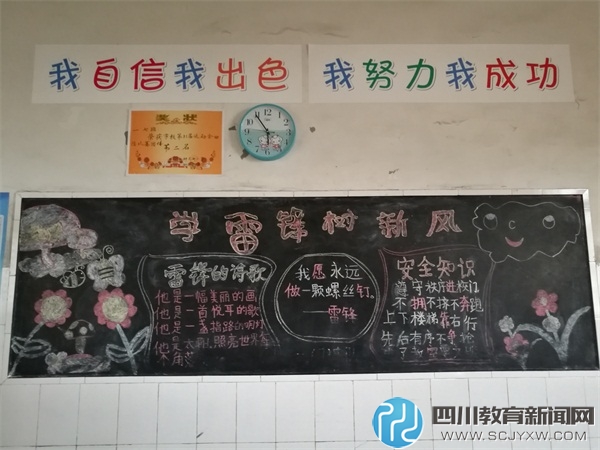 我自信我出色
我努力我成功
奖状
第二名
学雷锋树新风
雷锋的诗歌
他是一幅美丽的画
他是一首悦耳的歌
他是一盏指路的明灯
我愿永远
做一颗螺丝钉。
——雷锋
安全知识
遵守秩序进校门
不拥不挤不奔跑
上下楼梯靠右行
先后有序不争论
四川教育新闻网
WWW.SCJYXW.COM